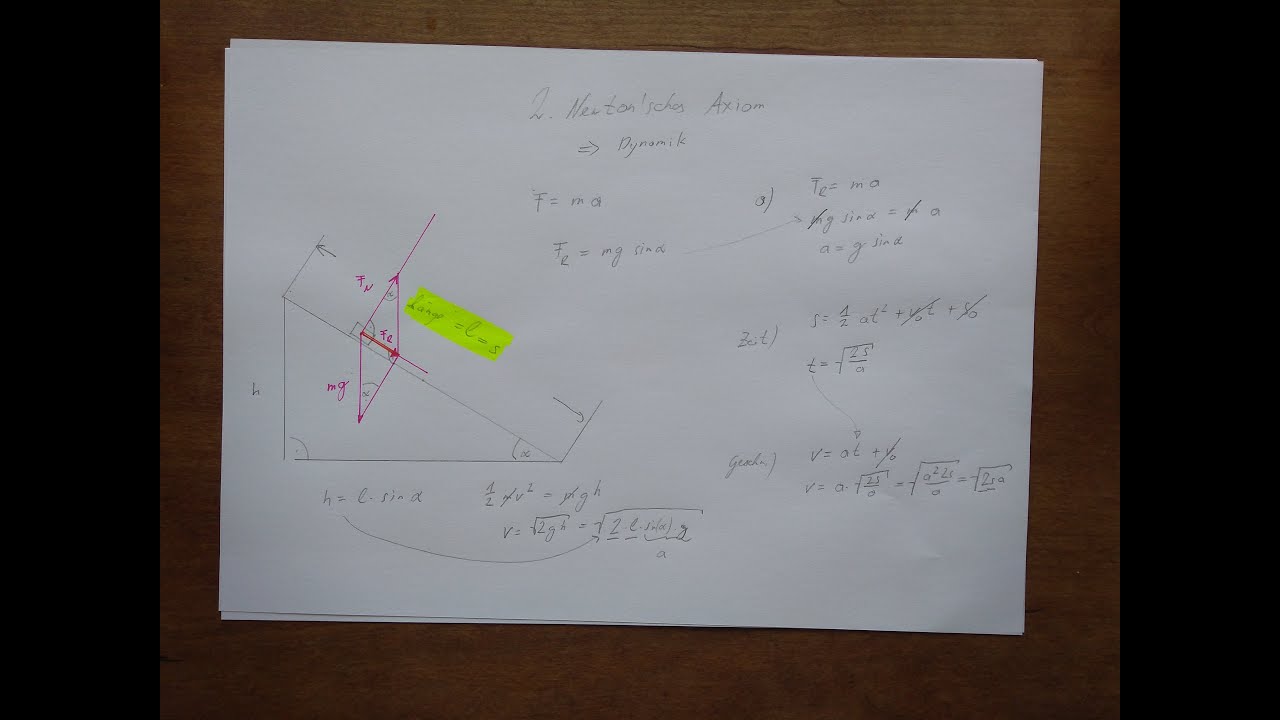 2. Newton'sches Axiom
⇒ Dynamik
F = m a
F_R = mg sinα
a) F_R = m a
mg sinα = m a
a = g sinα
F_N
α
Länge = l = s
F_R
mg
α
h
α
Zeit) s = 1/2 at² + v₀t + s₀
t = √(2s/a)
Geschw.) v = at + v₀
v = a · √(2s/a) = √(a² 2s/a) = √(2sa)
h = l · sinα
1/2 mv² = mgh
v = √(2gh) = √(2 · l · sin(α) · g)
a